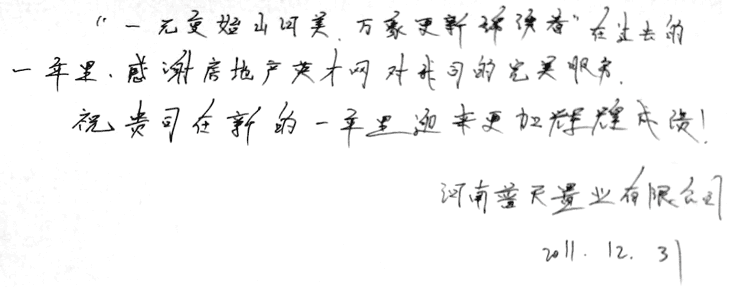 “一元复始山河美，万象更新锦绣春”在过去的
一年里，感谢房地产英才网对我司的完美服务，
祝贵司在新的一年里迎来更加辉煌成绩！
河南普天置业有限公司
2011.12.31